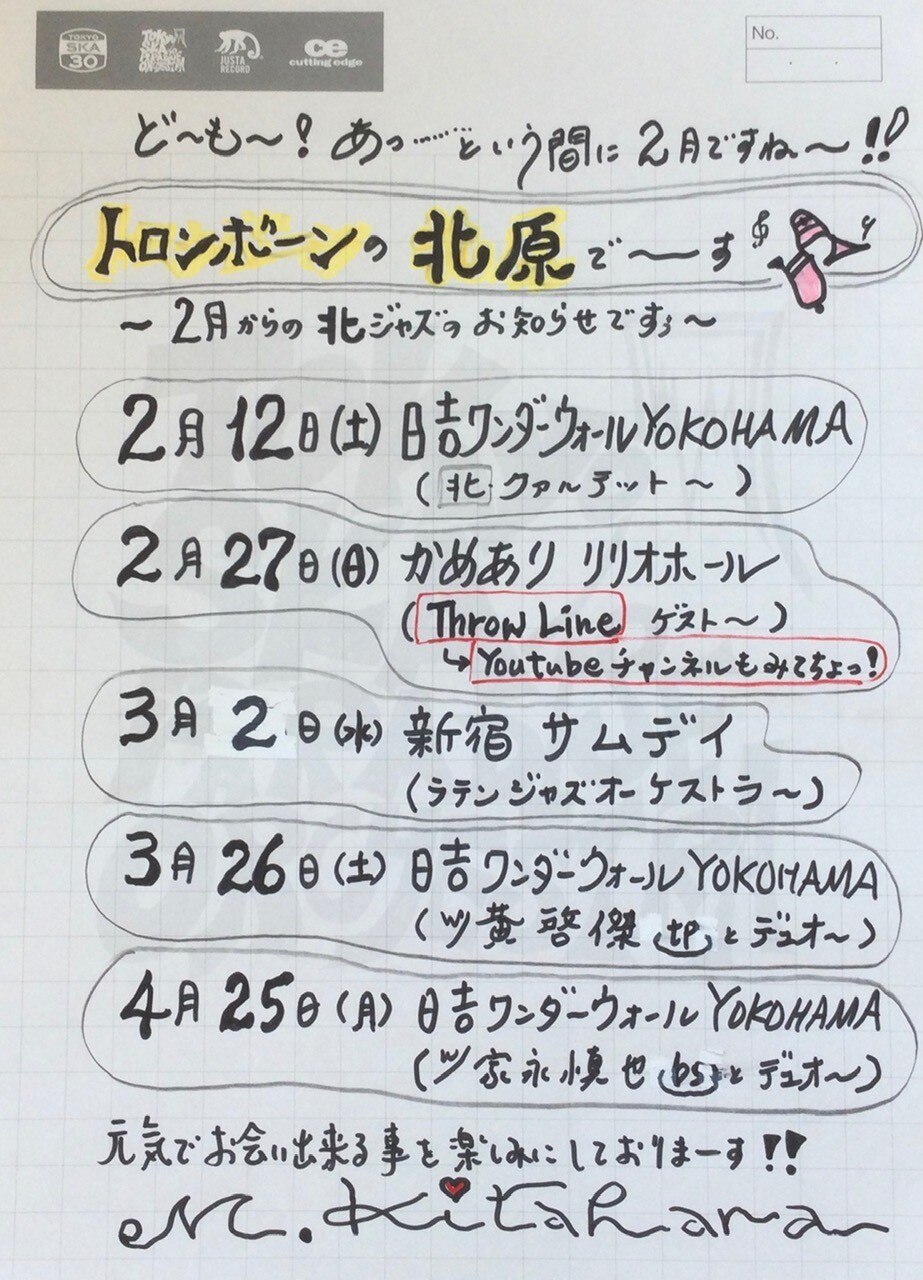 TOKYO
SKA
30
JUSTA
RECORD
ce
cutting edge
No.
ど〜も〜!あっ……という間に2月ですね〜!!
トロンボーンの北原で〜す
〜2月からの北ジャズのお知らせですぅ〜
2月12日(土) 日吉ワンダーウォールYOKOHAMA
(北クァルテット〜)
2月27日(日) かめあり リリオホール
(Throw Line ゲスト〜)
↳Youtubeチャンネルもみてちょっ!
3月2日(水) 新宿 サムデイ
(ラテンジャズオーケストラ〜)
3月26日(土) 日吉ワンダーウォールYOKOHAMA
(W/黄啓傑(tp)とデュオ〜)
4月25日(月) 日吉ワンダーウォールYOKOHAMA
(W/家永慎也(bs)とデュオ〜)
元気でお会い出来る事を楽しみにしておりまーす!!
M.Kitahara